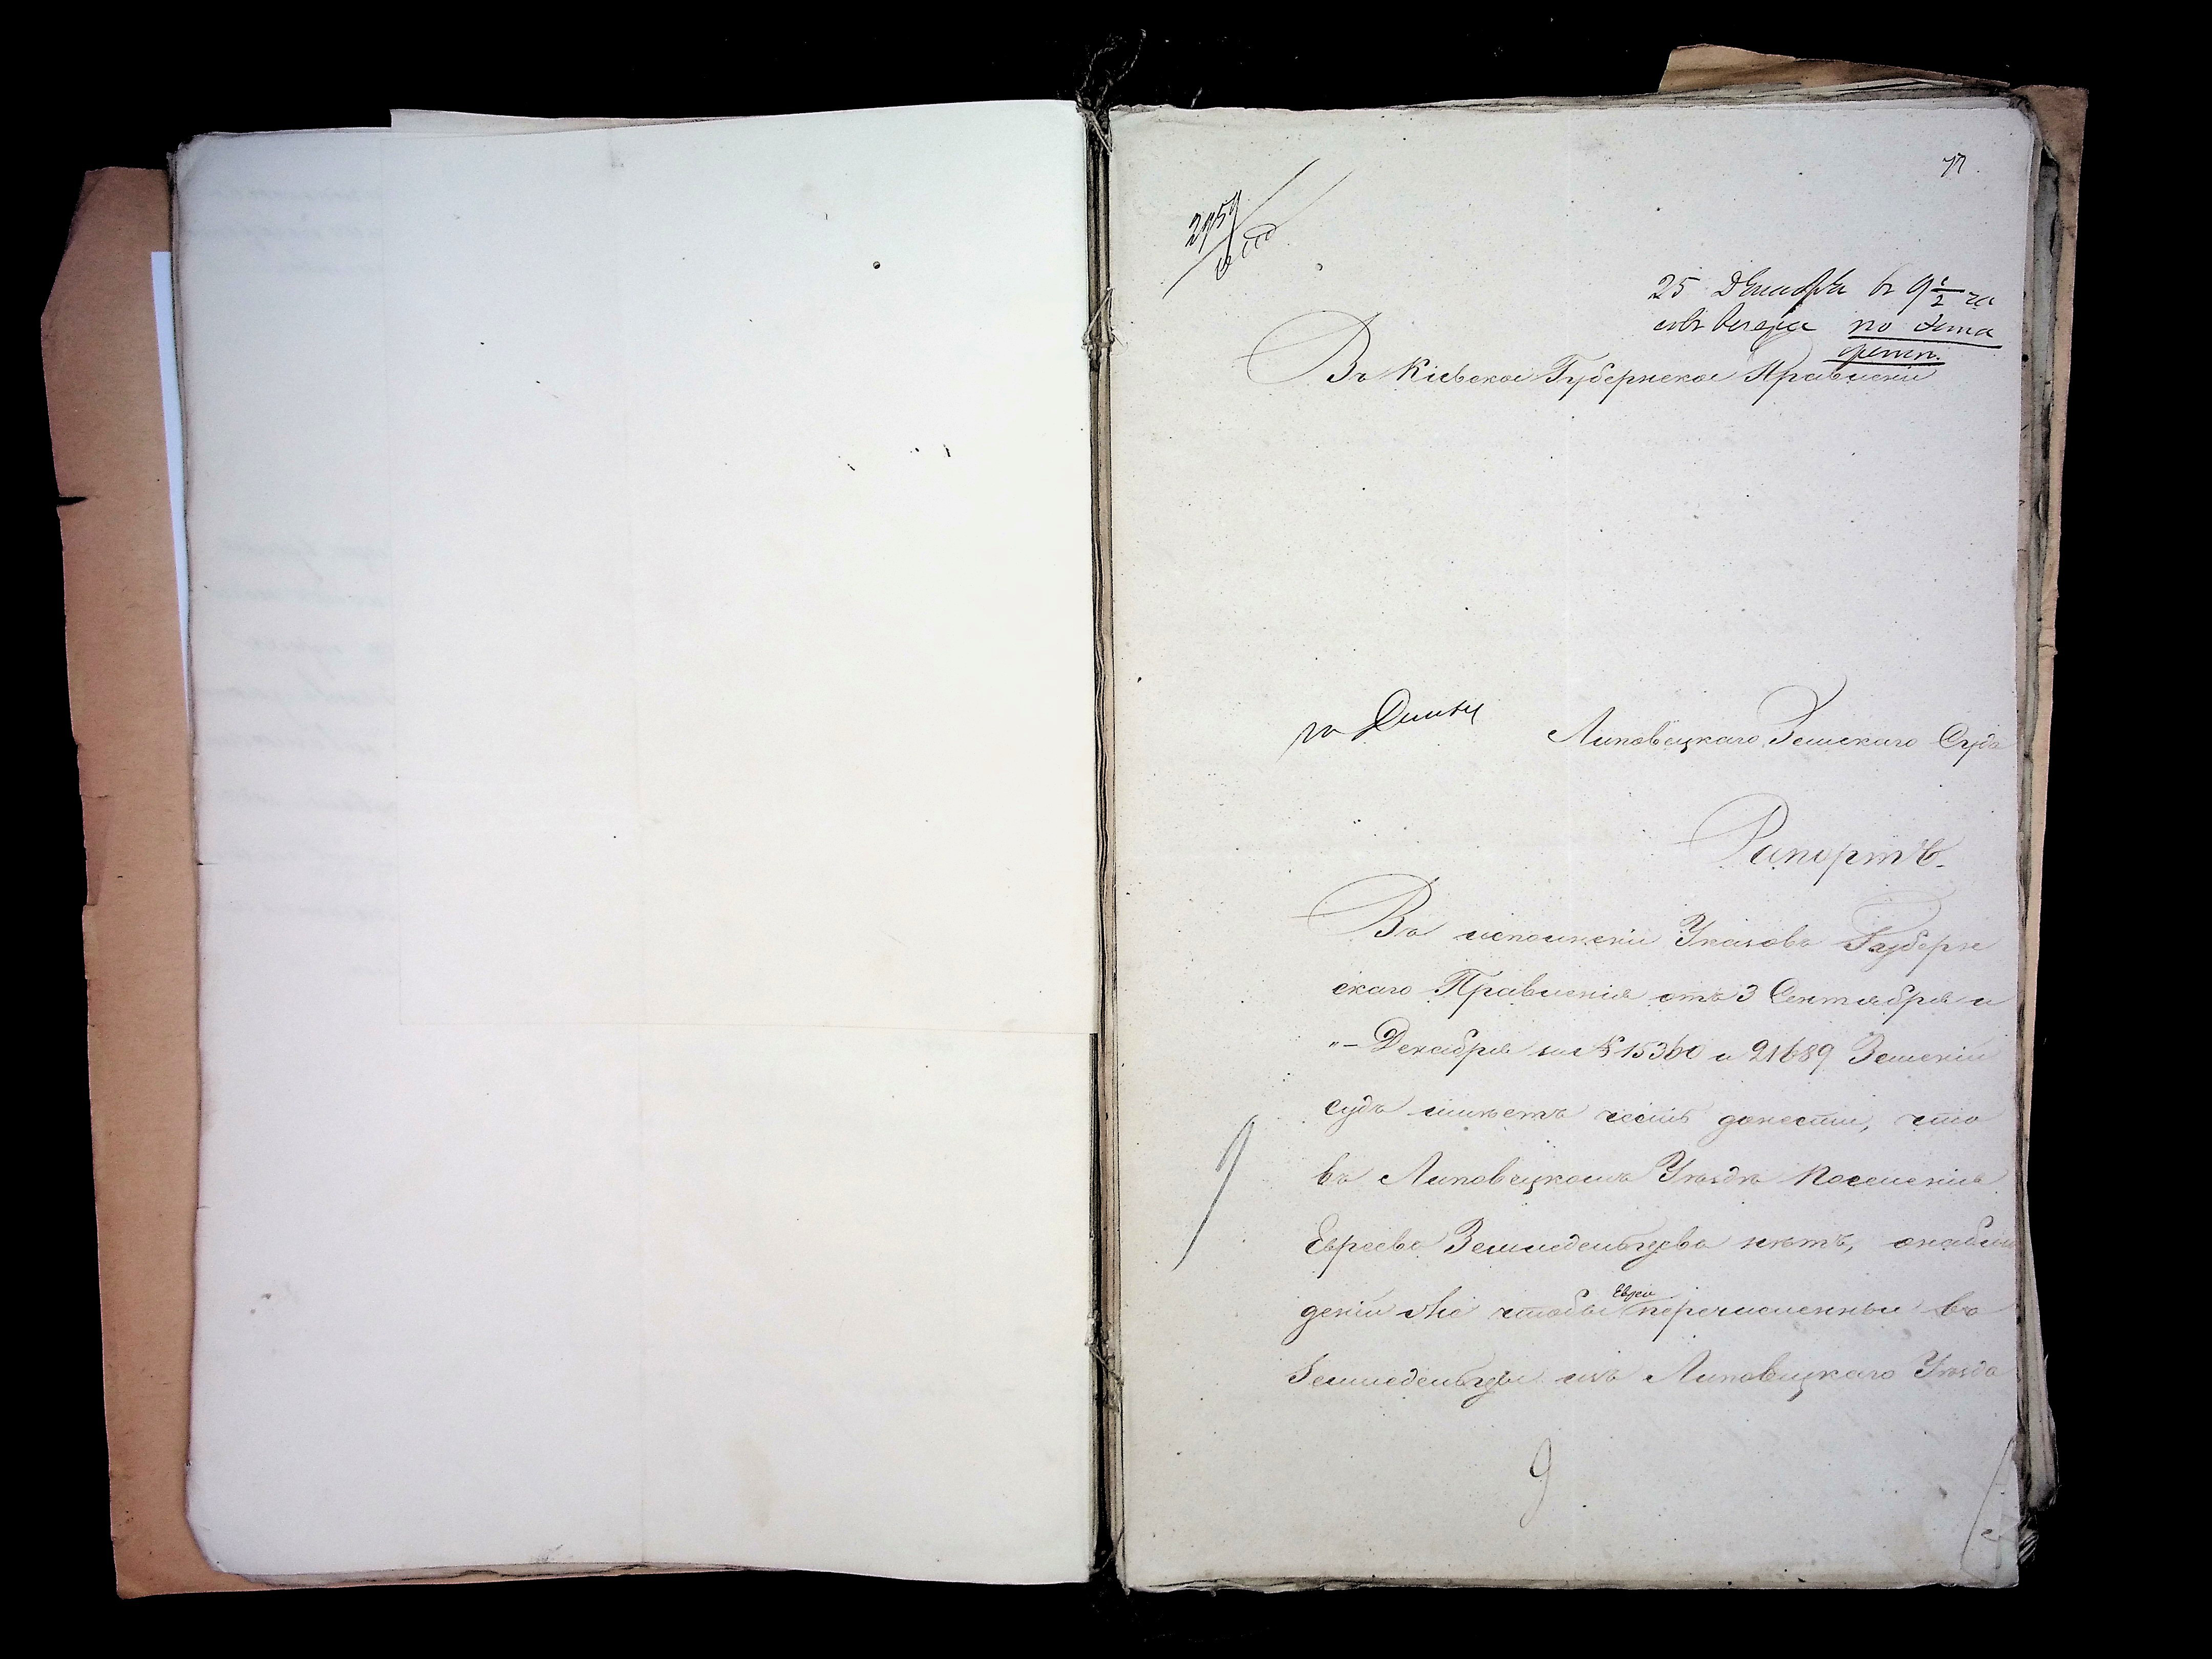 77.
2757
25 Декабря въ 9 1/2 ча
совъ вечера по эста
фетѣ.
Въ Кіевское Губернское Правленіе
Липовецкаго Земскаго Суда
Рапортъ.
Во исполненіе Указовъ Губерн
скаго Правленія отъ 3 Сентября и
"– Декабря за № 15360 и 21689 Земскій
судъ имѣетъ честь донести, что
въ Липовецкомъ Уѣздѣ Поселенія
Евреевъ Земледельцевъ нѣтъ, о наблю
деніи же чтобы Евреи перечисленные въ
Земледельцы изъ Липовецкаго Уѣзда
9